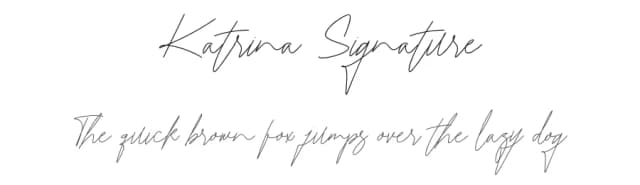 Katrina Signature
The quick brown fox jumps over the lazy dog